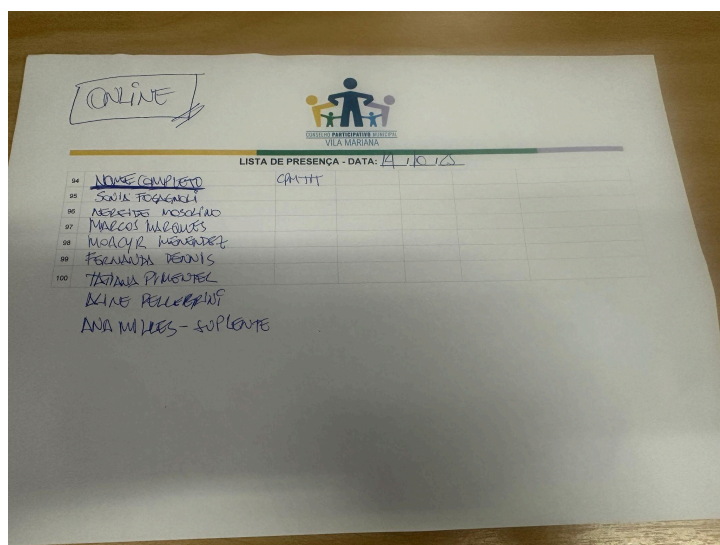 ONLINE
CONSELHO PARTICIPATIVO MUNICIPAL
VILA MARIANA
LISTA DE PRESENÇA - DATA: 14 / 10 / 25
94 NOME COMPLETO
95 SONIA FOGAGNOLI
96 NEREIDE MOSOLINO
97 MARCOS MARQUES
98 MOACYR MENENDEZ
99 FERNANDA DENNIS
100 TATIANA PIMENTEL
ALINE PELLEGRINI
ANA MILRES - SUPLENTE